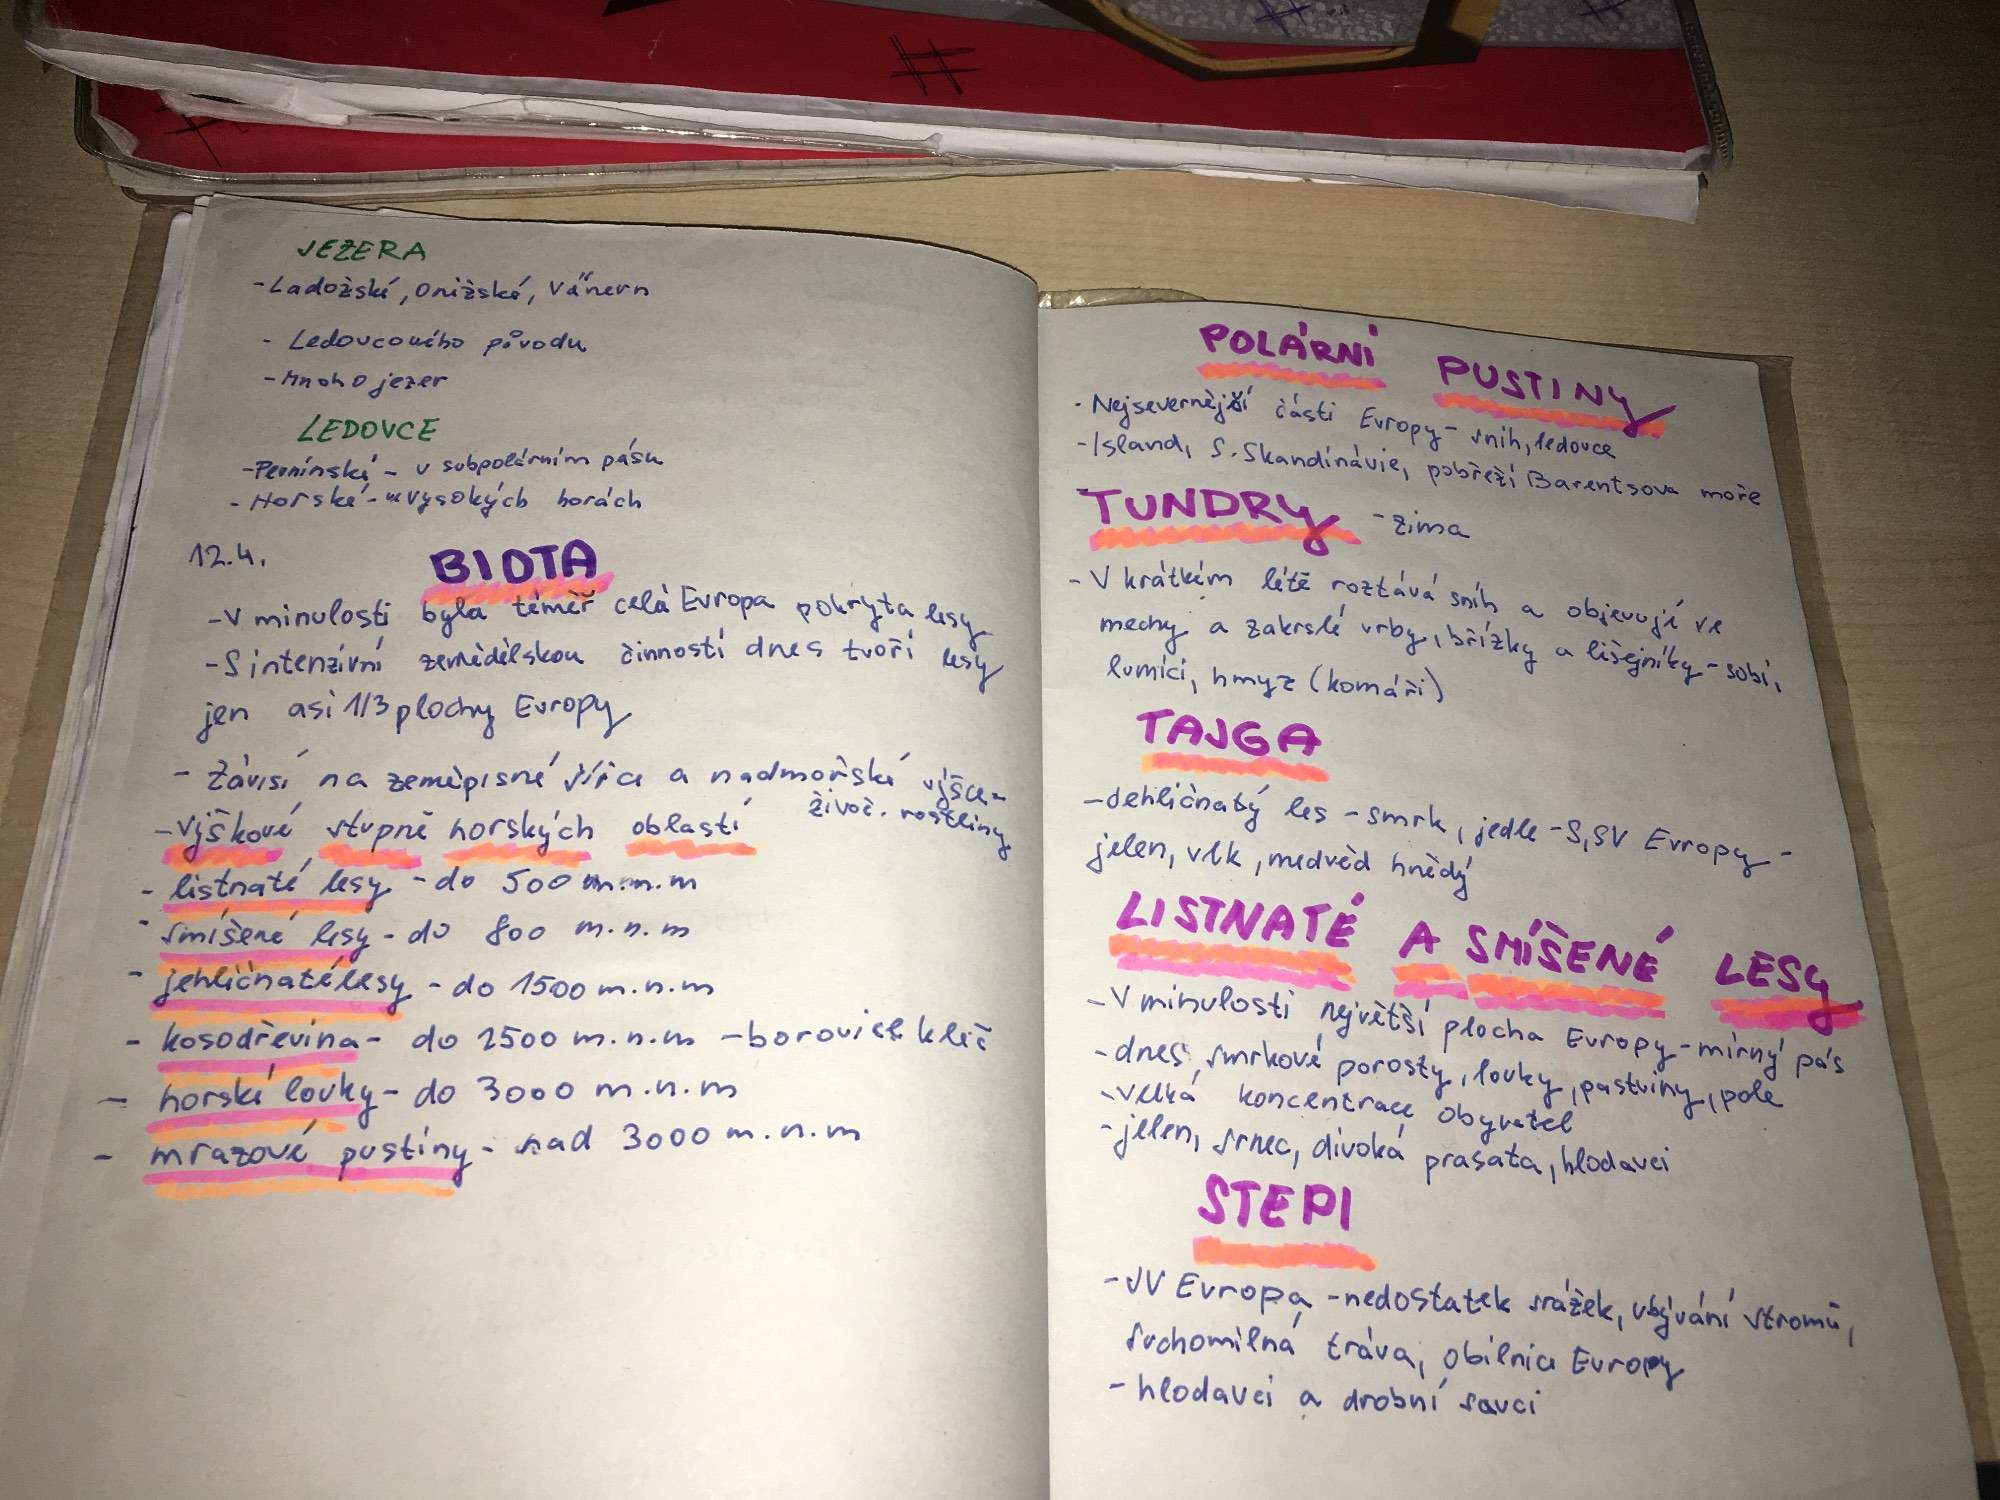 JEZERA
-Ladožské, Onižské, Vänern
- Ledovcového původu
- Mnoho jezer
LEDOVCE
-Pevninské - v subpolárním pásu
- Horské - vysokých horách
12.4.
BIOTA
-V minulosti byla téměř celá Evropa pokryta lesy
-S intenzívní zemědělskou činností dnes tvoří lesy
jen asi 1/3 plochy Evropy
- Závisí na zeměpisné šířce a nadmořské výšce-
živoč. rostliny
-výškové stupně horských oblastí
- listnaté lesy - do 500 m.n.m
- smíšené lesy - do 800 m.n.m
- jehličnaté lesy - do 1500 m.n.m
- kosodřevina - do 2500 m.n.m - borovice kleč
- horské louky - do 3000 m.n.m
- mrazové pustiny - nad 3000 m.n.m
POLÁRNÍ PUSTINY
- Nejsevernější části Evropy - sníh, ledovce
- Island, S. Skandinávie, pobřeží Barentsova moře
TUNDRY - zima
- V krátkém létě roztává sníh a objevují se
mechy a zakrslé vrby, břízky a lišejníky - sobi,
lumíci, hmyz (komáři)
TAJGA
- dehličnatý les - smrk, jedle - S, SV Evropy -
jelen, vlk, medvěd hnědý
LISTNATÉ A SMÍŠENÉ LESY
- V minulosti největší plocha Evropy - mírný pás
- dnes, smrkové porosty, louky, pastviny, pole
- velká koncentrace obyvatel
- jelen, srnec, divoká prasata, hlodavci
STEPI
- JV Evropa - nedostatek srážek, ubývání stromů,
suchomilná tráva, obilnice Evropy
- hlodavci a drobní savci